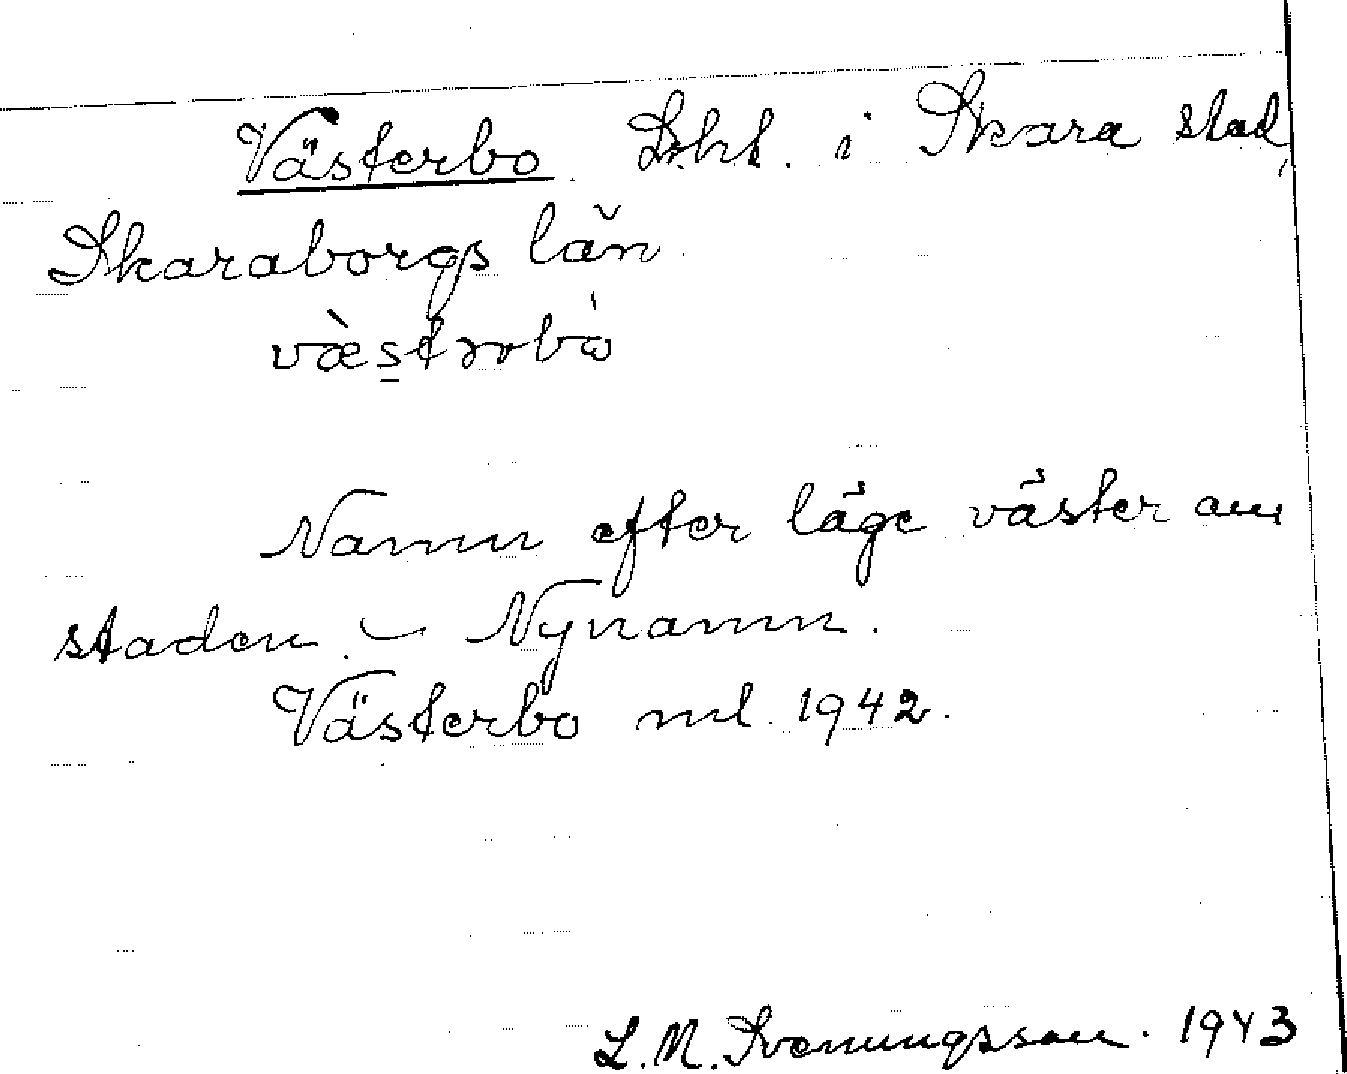 Västerbo Lht. i Skara stad,
Skaraborgs län
væ̀stərbò
Namn efter läge väster om
staden. – Nynamn.
Västerbo ml. 1942.
L. M. Svenungsson. 1943